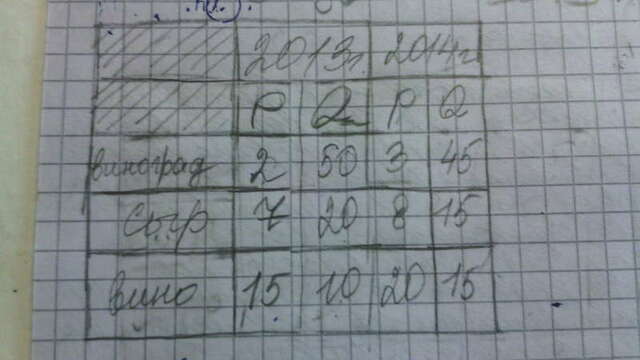 2013г. 2014г.
P Q P Q
виноград 2 50 3 45
сыр 7 20 8 15
вино 15 10 20 15